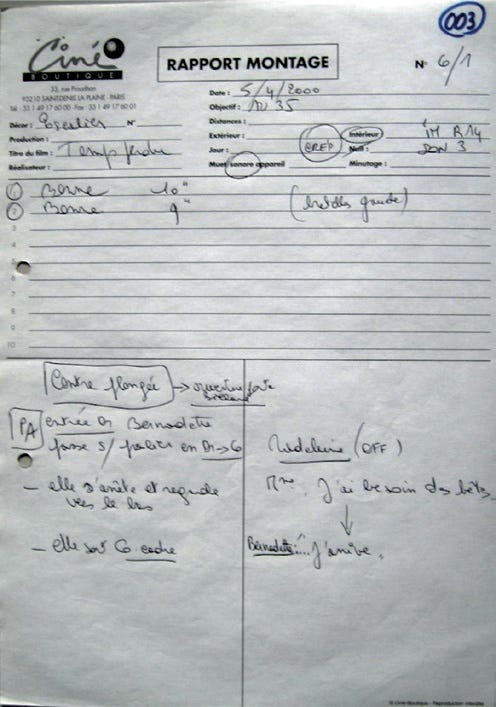 003
Ciné
BOUTIQUE
RAPPORT MONTAGE
N° 6/1
33, rue Proudhon
93210 SAINT-DENIS LA PLAINE - PARIS
Tél : 33 1 49 17 60 00 - Fax : 33 1 49 17 60 01
Date : 5/4/2000
Objectif : 35
Décor : Escalier N°
Distances :
Production :
Extérieur : CREP Intérieur IM R14
Titre du film : Temps perdu
Jour : Nuit : SON 3
Réalisateur :
Muet sonore appareil Minutage :
1 Bonne 10"
2 Bonne 9" ( gauche)
3
4
5
6
7
8
9
10
Contre plongée →
PA entrée D. Bernadette
passe s/ palier en D → G
Madeleine (OFF)
— elle s'arrête et regarde
vers le bas
J'ai besoin des
— elle sort G. cadre
Bernadette: ... J'arrive.
© Ciné-Boutique - Reproduction interdite